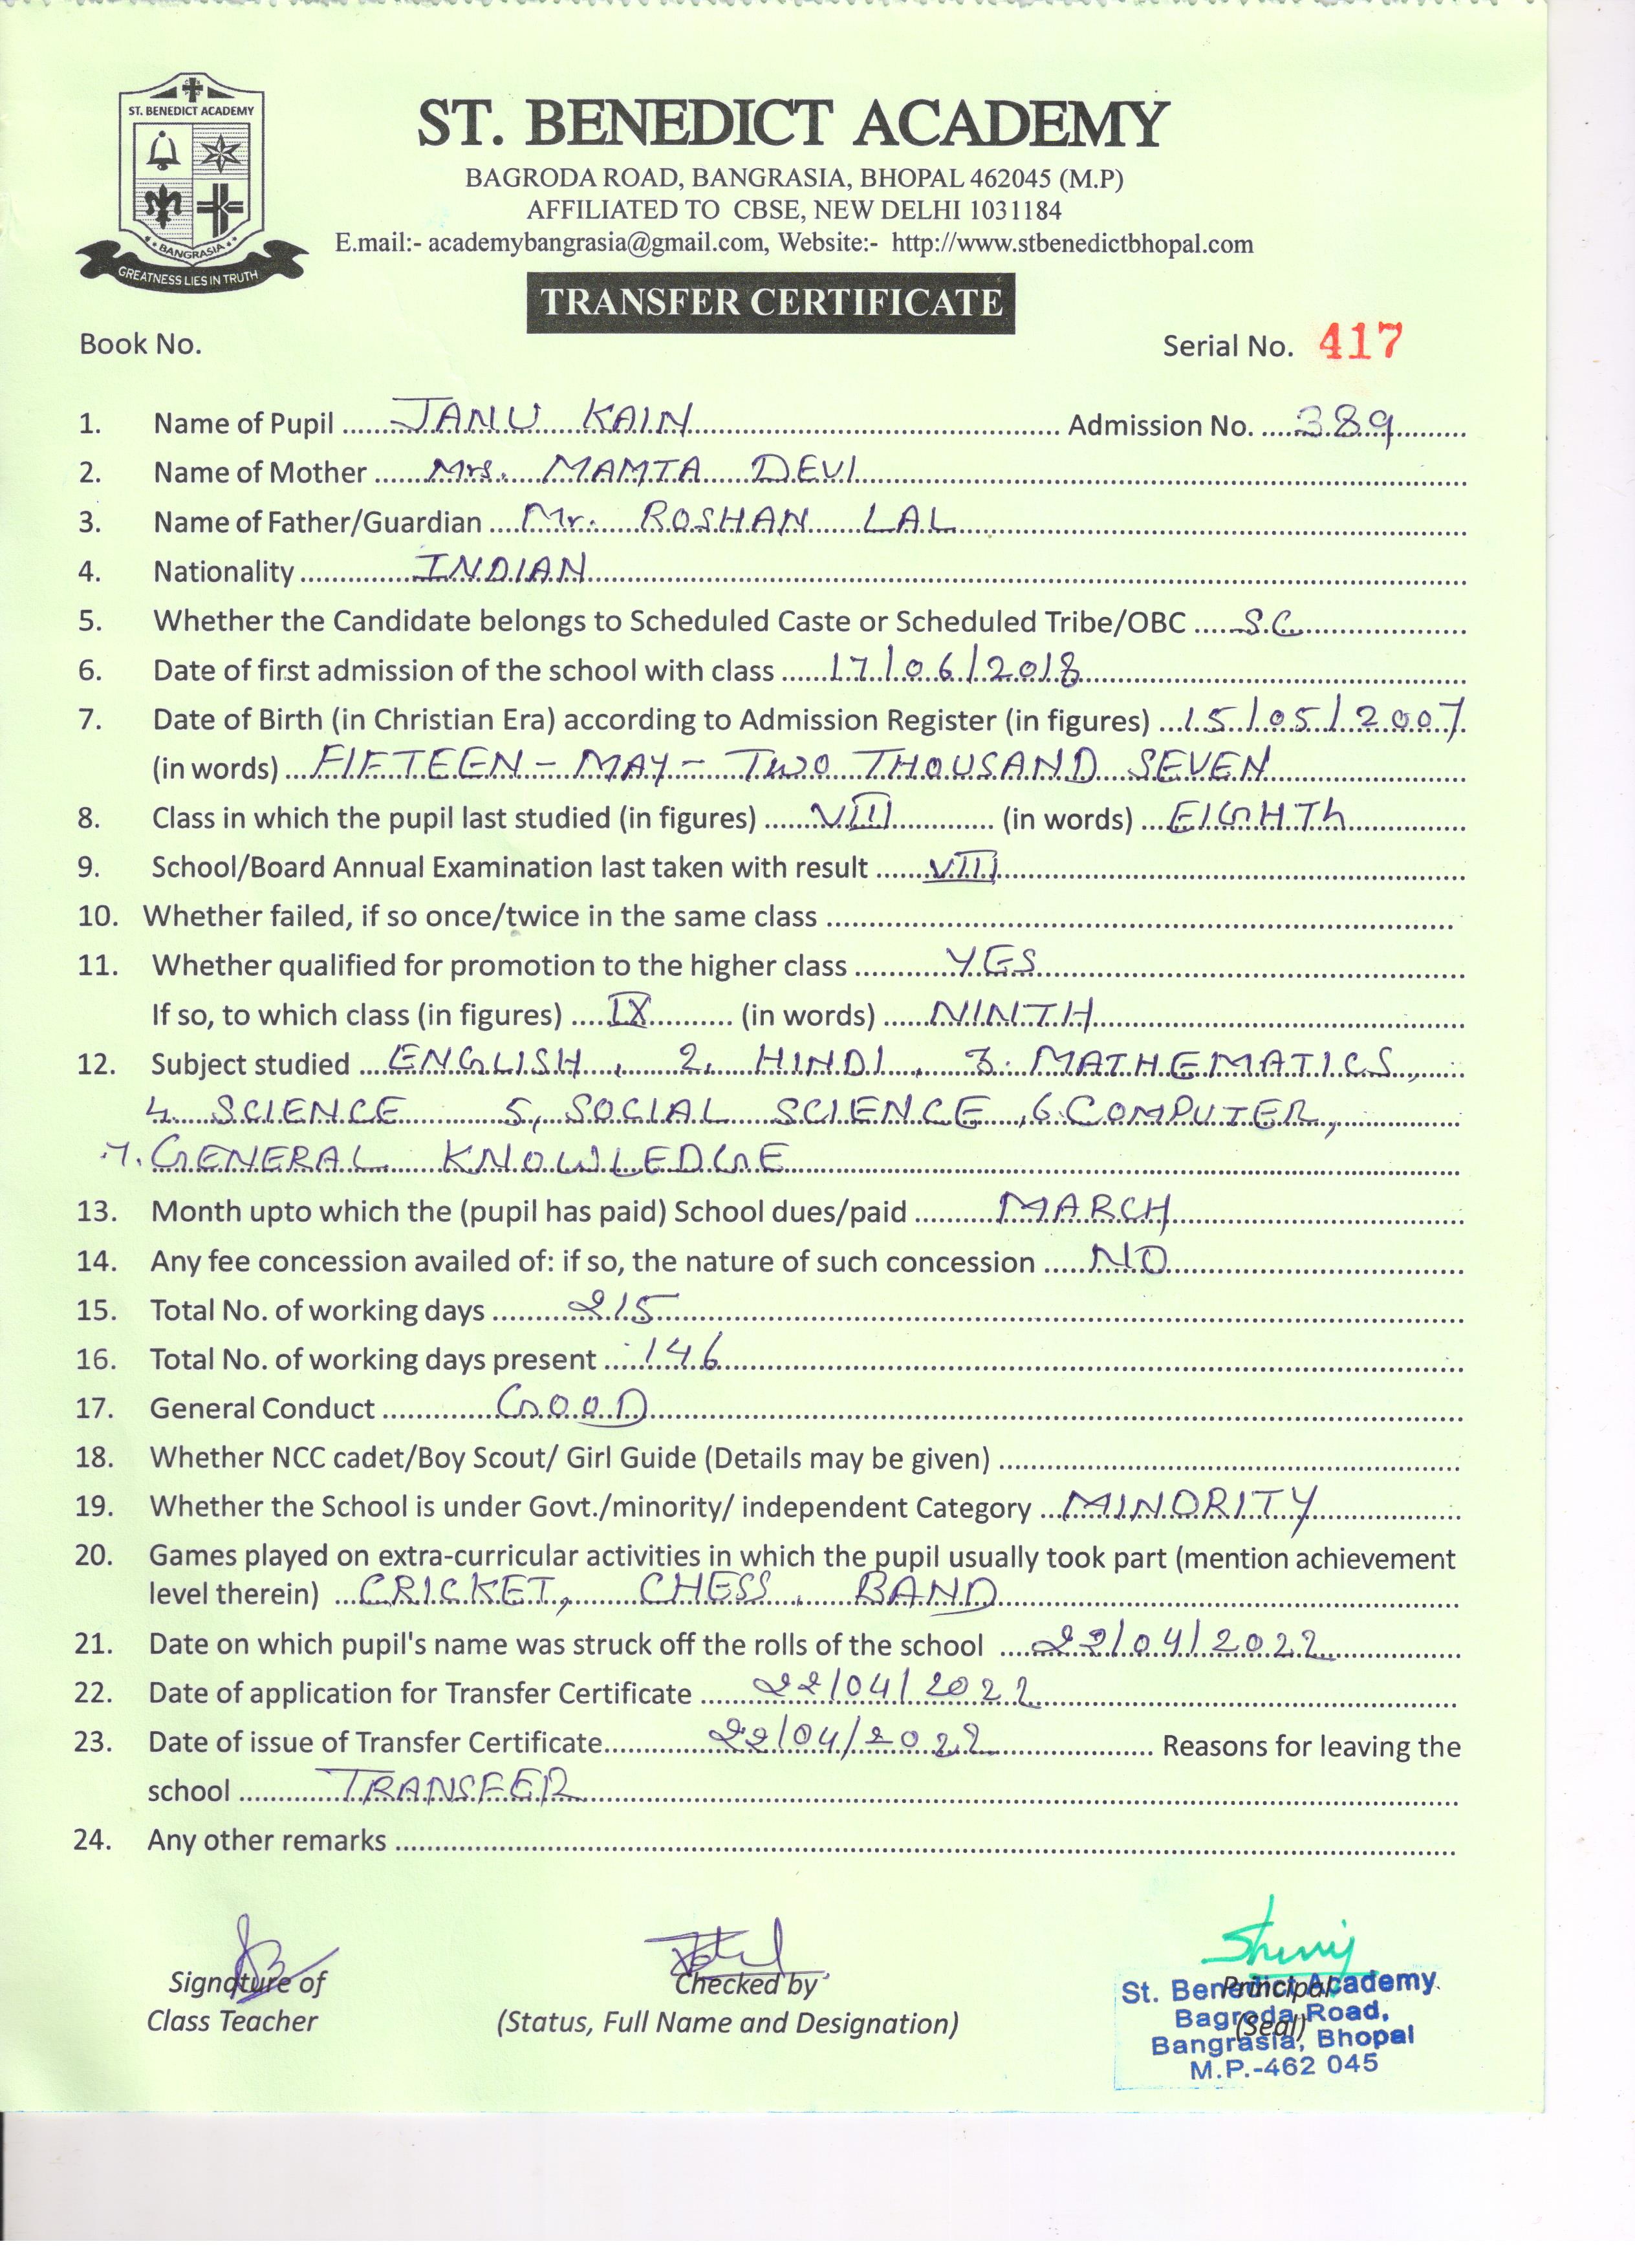 ST. BENEDICT ACADEMY
BANGRASIA
GREATNESS LIES IN TRUTH
ST. BENEDICT ACADEMY
BAGRODA ROAD, BANGRASIA, BHOPAL 462045 (M.P)
AFFILIATED TO CBSE, NEW DELHI 1031184
E.mail:- academybangrasia@gmail.com, Website:- http://www.stbenedictbhopal.com
TRANSFER CERTIFICATE
Book No. Serial No. 417
1. Name of Pupil JANU KAIN Admission No. 389
2. Name of Mother Mrs. MAMTA DEVI
3. Name of Father/Guardian Mr. ROSHAN LAL
4. Nationality INDIAN
5. Whether the Candidate belongs to Scheduled Caste or Scheduled Tribe/OBC S.C
6. Date of first admission of the school with class 17/06/2018
7. Date of Birth (in Christian Era) according to Admission Register (in figures) 15/05/2007
(in words) FIFTEEN - MAY - TWO THOUSAND SEVEN
8. Class in which the pupil last studied (in figures) VIII (in words) EIGHTh
9. School/Board Annual Examination last taken with result VIII
10. Whether failed, if so once/twice in the same class
11. Whether qualified for promotion to the higher class YES
If so, to which class (in figures) IX (in words) NINTH
12. Subject studied ENGLISH, 2, HINDI, 3. MATHEMATICS,
4. SCIENCE 5, SOCIAL SCIENCE, 6. COMPUTER,
7. GENERAL KNOWLEDGE
13. Month upto which the (pupil has paid) School dues/paid MARCH
14. Any fee concession availed of: if so, the nature of such concession NO
15. Total No. of working days 215
16. Total No. of working days present 146
17. General Conduct GOOD
18. Whether NCC cadet/Boy Scout/ Girl Guide (Details may be given)
19. Whether the School is under Govt./minority/ independent Category MINORITY
20. Games played on extra-curricular activities in which the pupil usually took part (mention achievement
level therein) CRICKET, CHESS, BAND
21. Date on which pupil's name was struck off the rolls of the school 22/04/2022
22. Date of application for Transfer Certificate 22/04/2022
23. Date of issue of Transfer Certificate 22/04/2022 Reasons for leaving the
school TRANSFER
24. Any other remarks
Signature of
Class Teacher
Checked by
(Status, Full Name and Designation)
Principal
(Seal)
St. Benedict Academy
Bagroda Road,
Bangrasia, Bhopal
M.P.-462 045